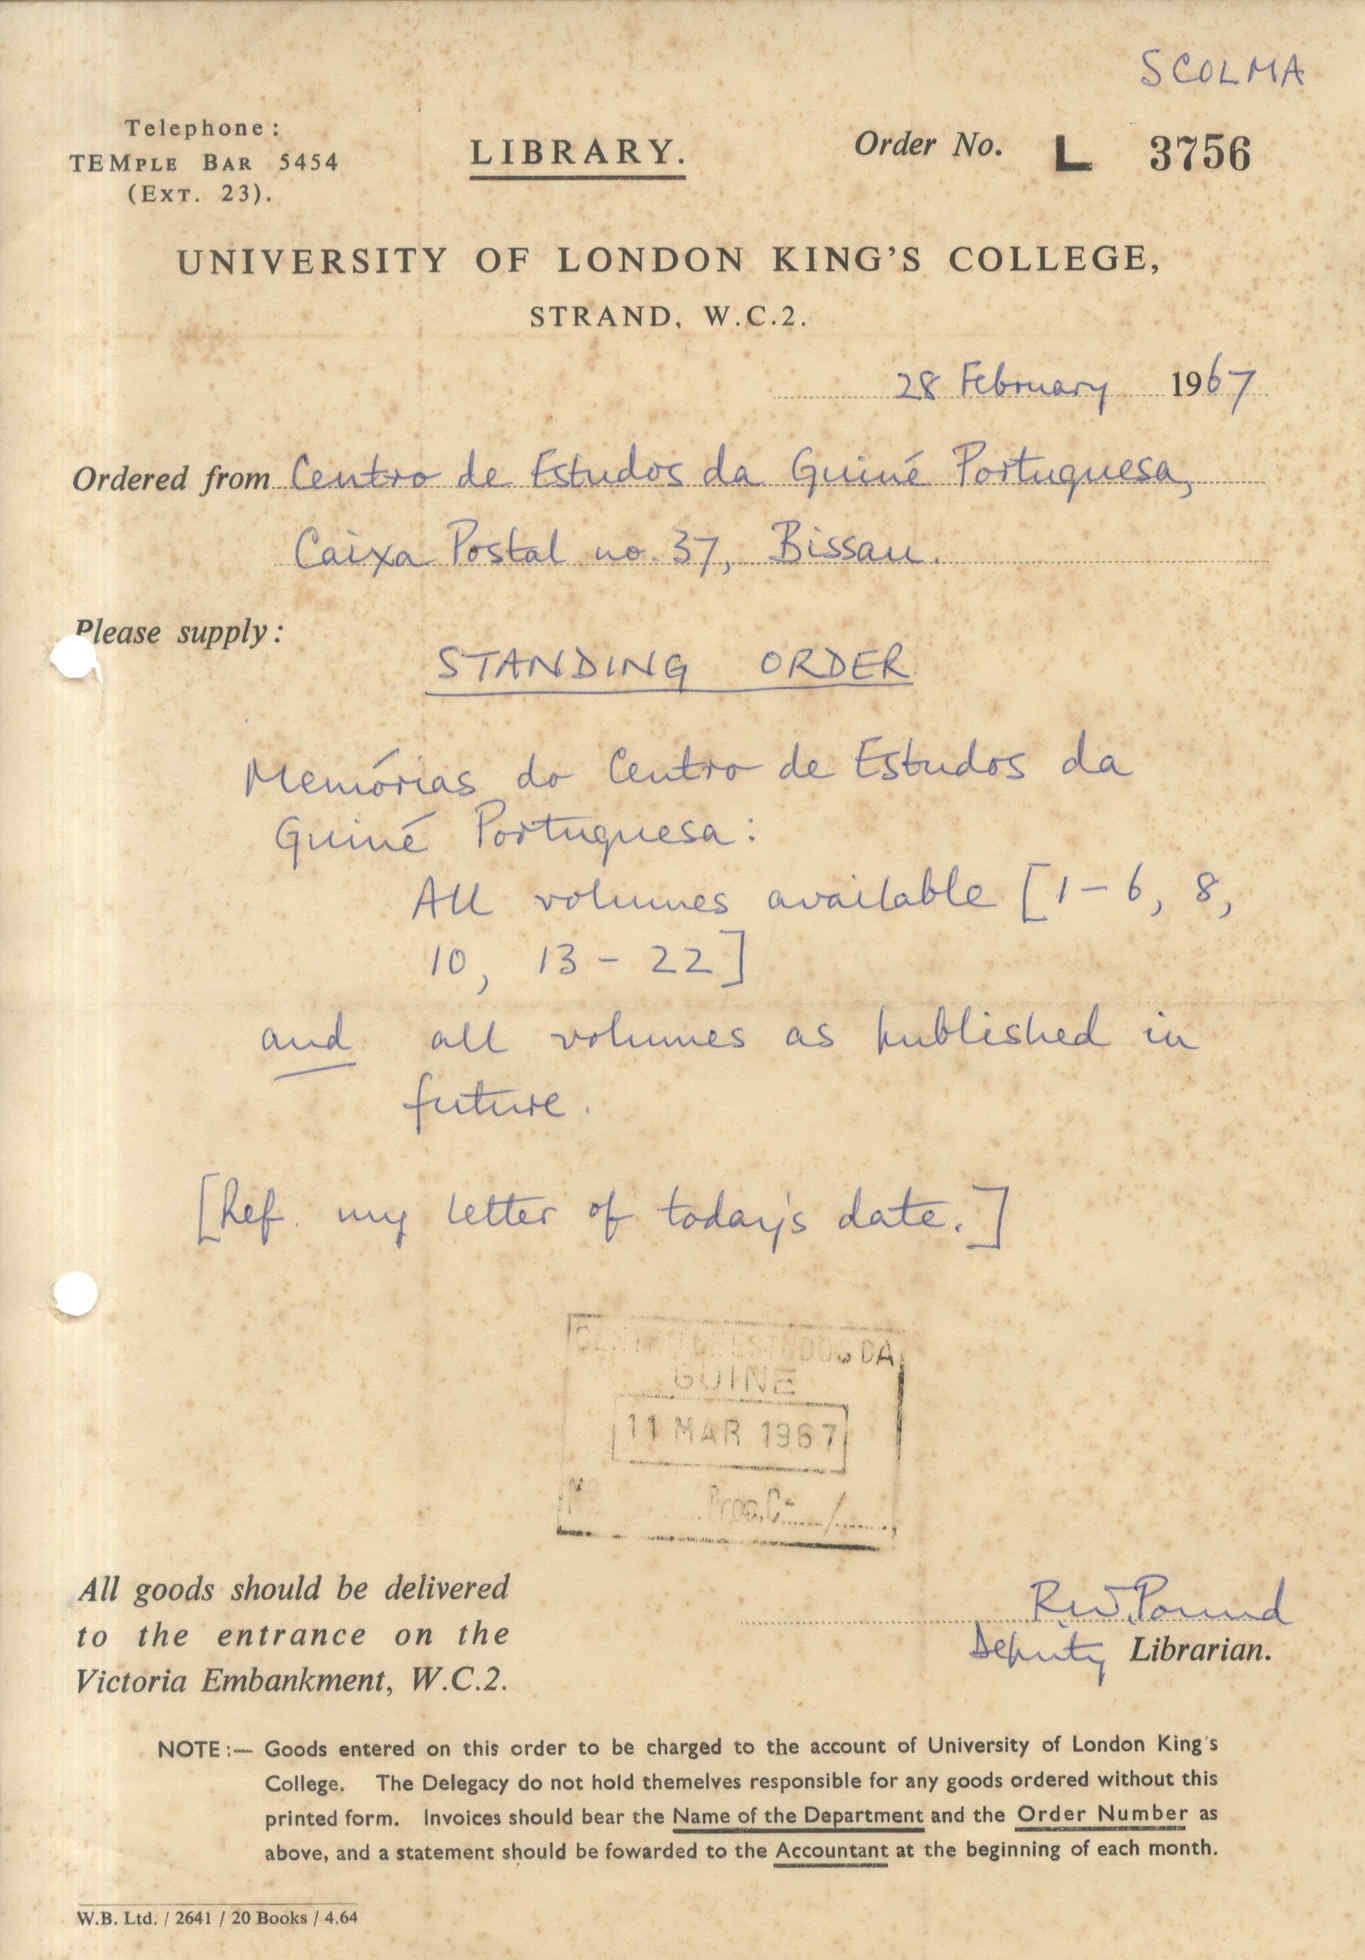 SCOLMA
Telephone:
TEMPLE BAR 5454
(EXT. 23).
LIBRARY.
Order No. L 3756
UNIVERSITY OF LONDON KING'S COLLEGE,
STRAND, W.C.2.
28 February 1967
Ordered from Centro de Estudos da Guiné Portuguesa,
Caixa Postal no. 37, Bissau.
Please supply:
STANDING ORDER
Memórias do Centro de Estudos da
Guiné Portuguesa:
All volumes available [1-6, 8,
10, 13-22]
and all volumes as published in
future.
[Ref. my letter of today's date.]
CENTRO DE ESTUDOS DA
GUINÉ
11 MAR 1967
All goods should be delivered
to the entrance on the
Victoria Embankment, W.C.2.
R.W. Pound
Deputy Librarian.
NOTE:— Goods entered on this order to be charged to the account of University of London King's
College. The Delegacy do not hold themelves responsible for any goods ordered without this
printed form. Invoices should bear the Name of the Department and the Order Number as
above, and a statement should be fowarded to the Accountant at the beginning of each month.
W.B. Ltd. / 2641 / 20 Books / 4.64